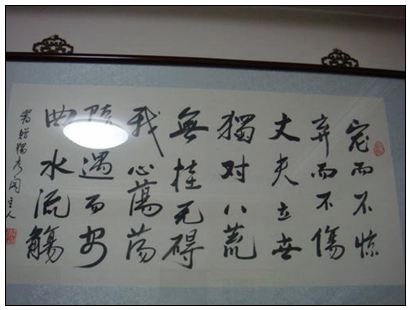 宠而不惊
弃而不傷
丈夫立世
獨对八荒
無挂无碍
我心蕩荡
随遇而安
曲水流觴
主人